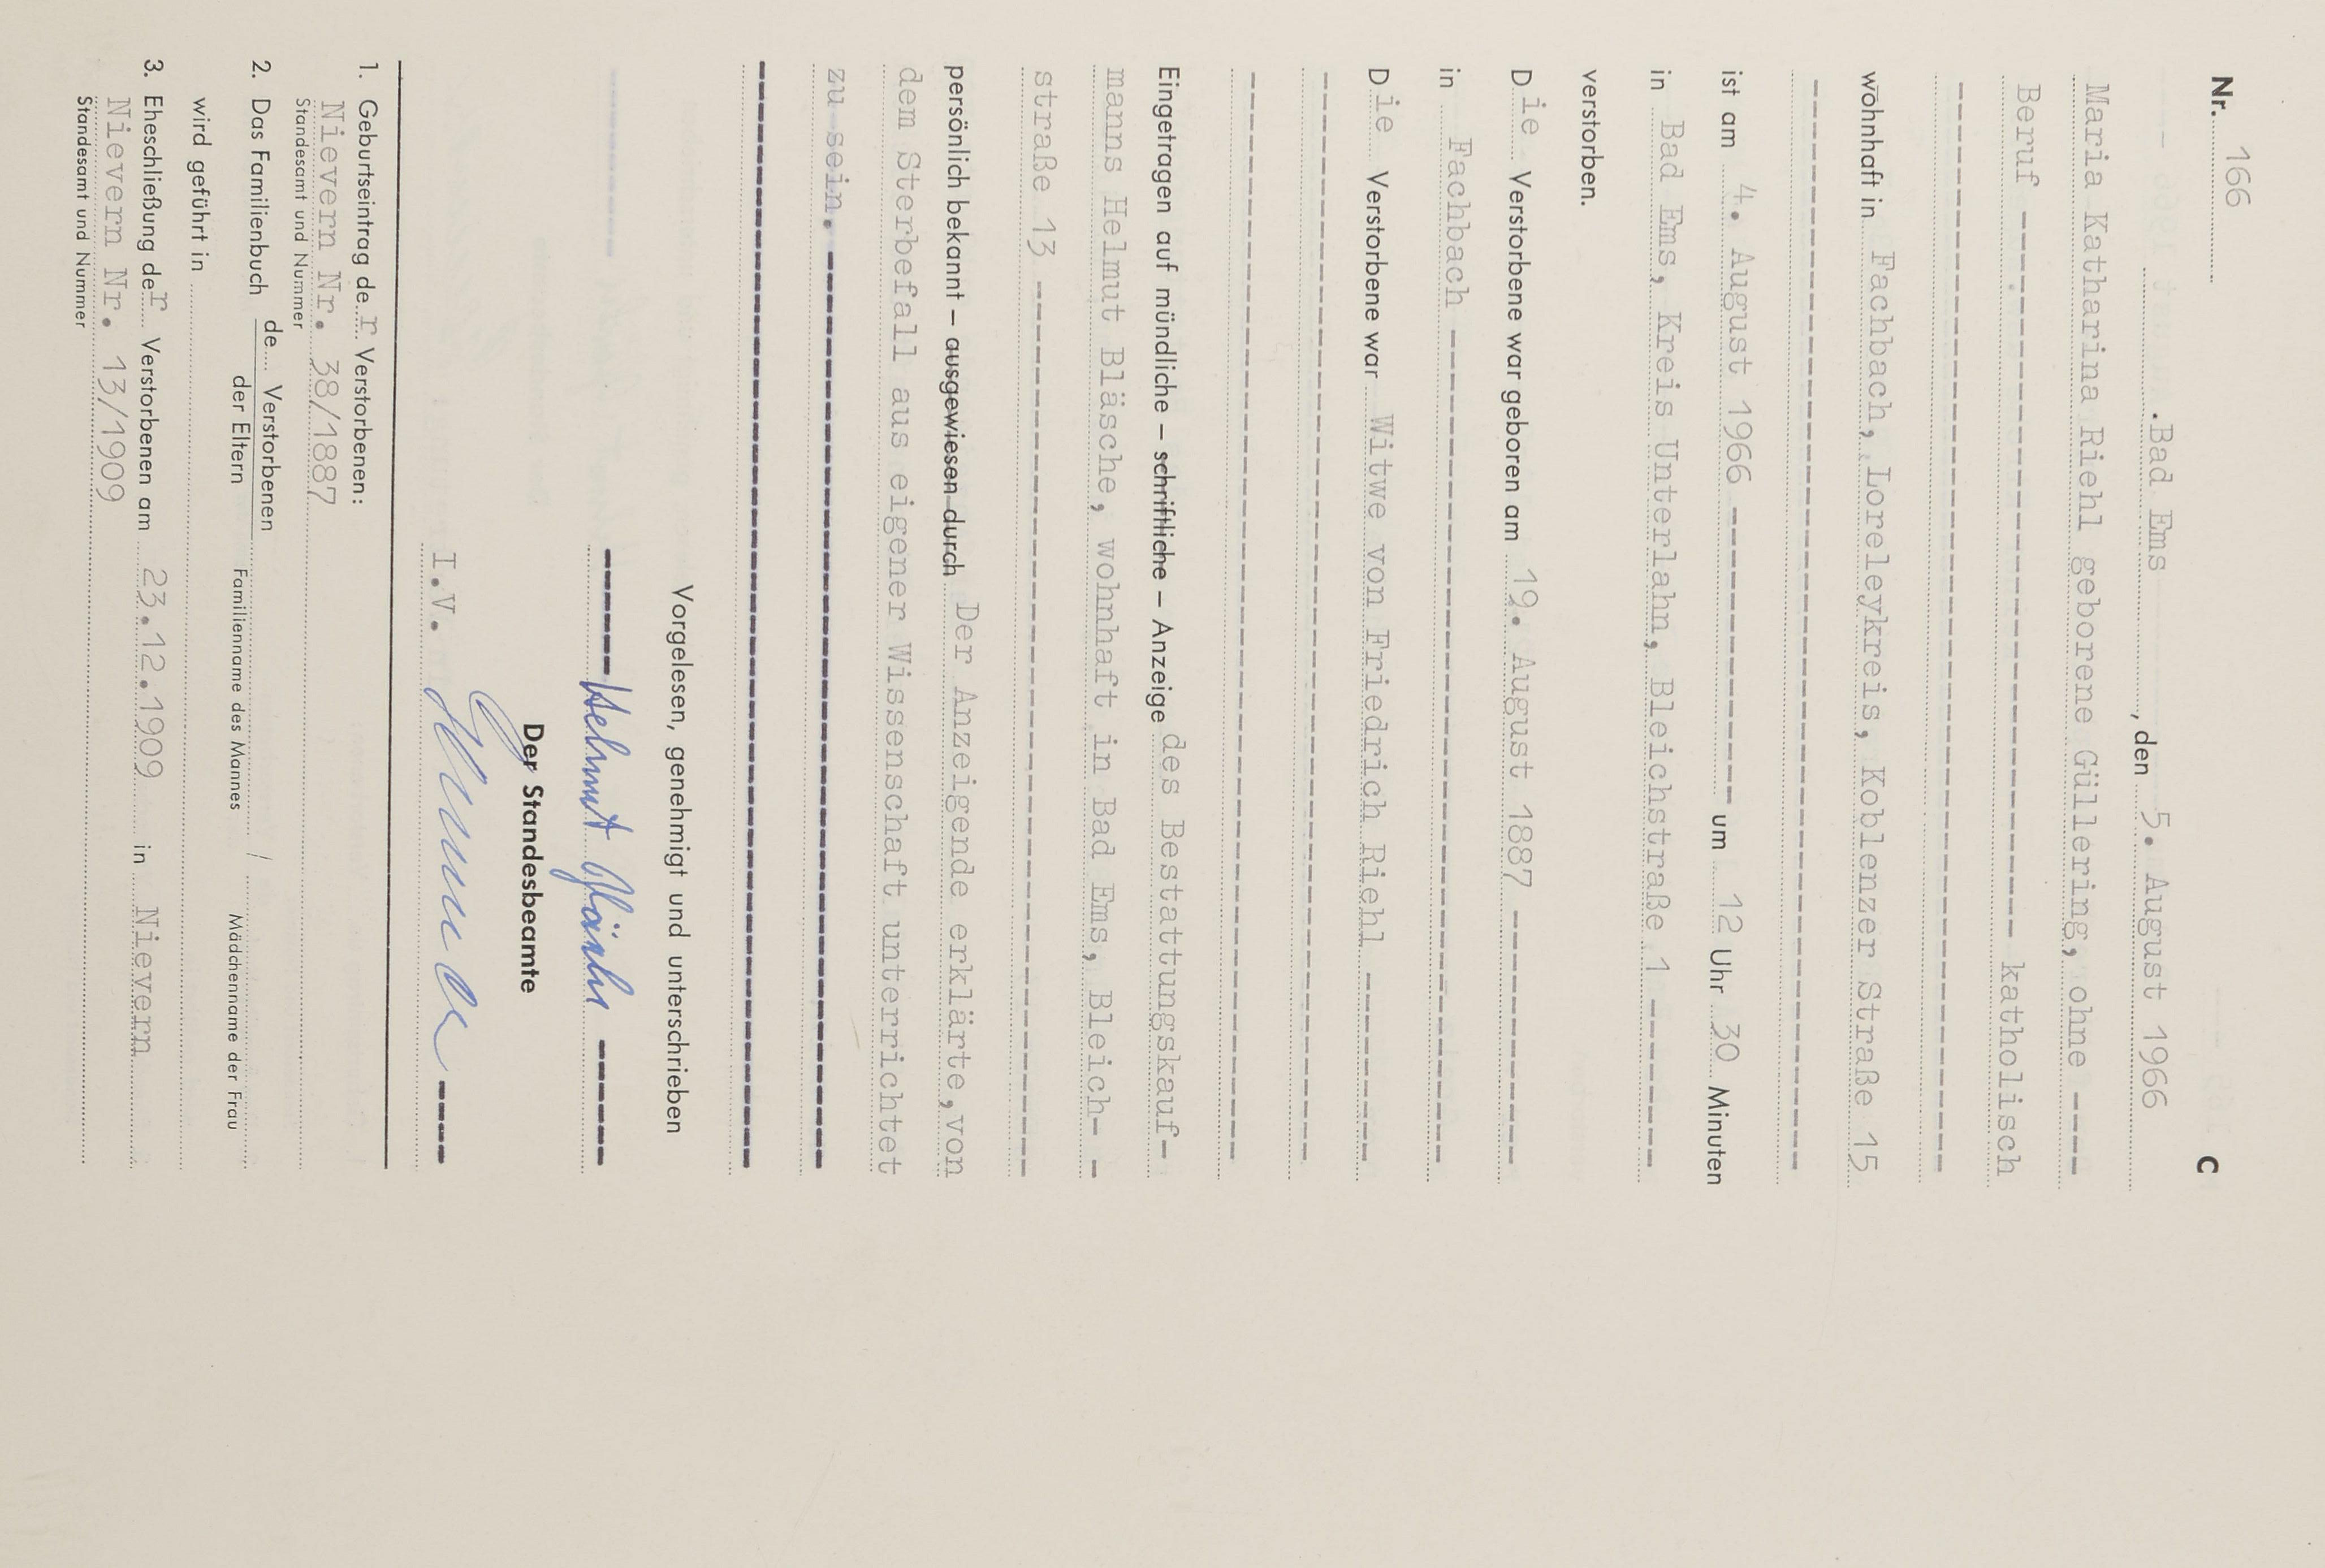 Nr. 166 C
Bad Ems, den 5. August 1966
Maria Katharina Riehl geborene Güllering, ohne ----
Beruf ---------------------------- katholisch
----------------------------------------
wohnhaft in Fachbach, Loreleykreis, Koblenzer Straße 15
----------------------------------------
ist am 4. August 1966 ------------ um 12 Uhr 30 Minuten
in Bad Ems, Kreis Unterlahn, Bleichstraße 1 ------
verstorben.
Die Verstorbene war geboren am 19. August 1887 ---------
in Fachbach ------------------------------
Die Verstorbene war Witwe von Friedrich Riehl -------
----------------------------------------
----------------------------------------
Eingetragen auf mündliche – schriftliche – Anzeige des Bestattungskauf-
manns Helmut Bläsche, wohnhaft in Bad Ems, Bleich- -
straße 13 --------------------------------
persönlich bekannt – ausgewiesen durch Der Anzeigende erklärte, von
dem Sterbefall aus eigener Wissenschaft unterrichtet
zu sein. --------------------------------
----------------------------------------
Vorgelesen, genehmigt und unterschrieben
----- Helmut Bläsche -----
Der Standesbeamte
I.V. ----
1. Geburtseintrag der Verstorbenen:
Nievern Nr. 38/1887
Standesamt und Nummer
2. Das Familienbuch de Verstorbenen
der Eltern Familienname des Mannes / Mädchenname der Frau
wird geführt in
3. Eheschließung der Verstorbenen am 23.12.1909 in Nievern
Nievern Nr. 13/1909
Standesamt und Nummer